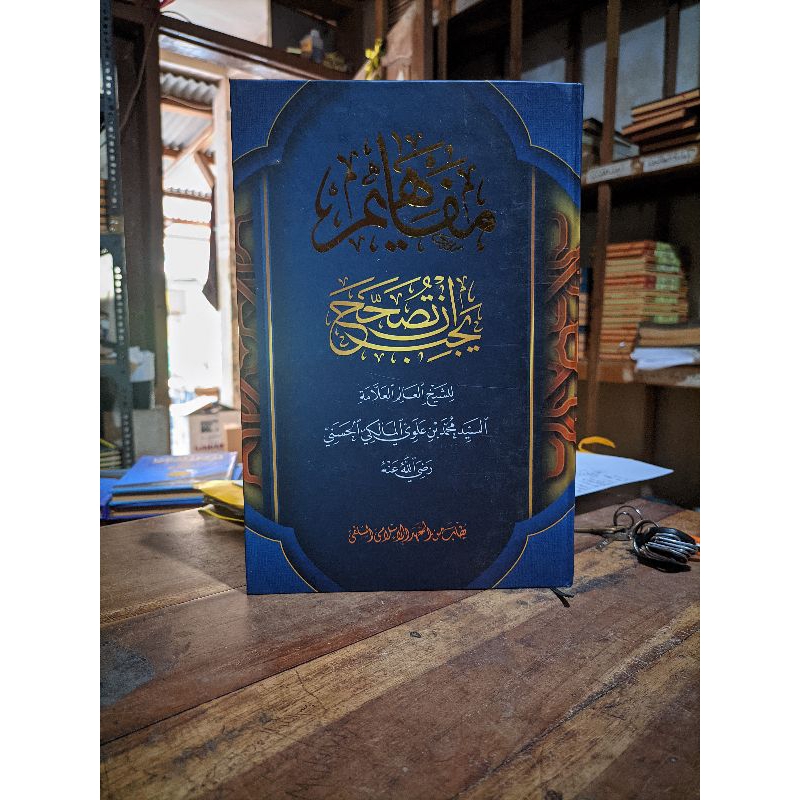 مفاهيم
يجب أن تصحح
للشيخ العالم العلامة
السيد محمد بن علوي المالكي الحسني
رضي الله عنه
يطلب من المعهد الإسلامي السلفي